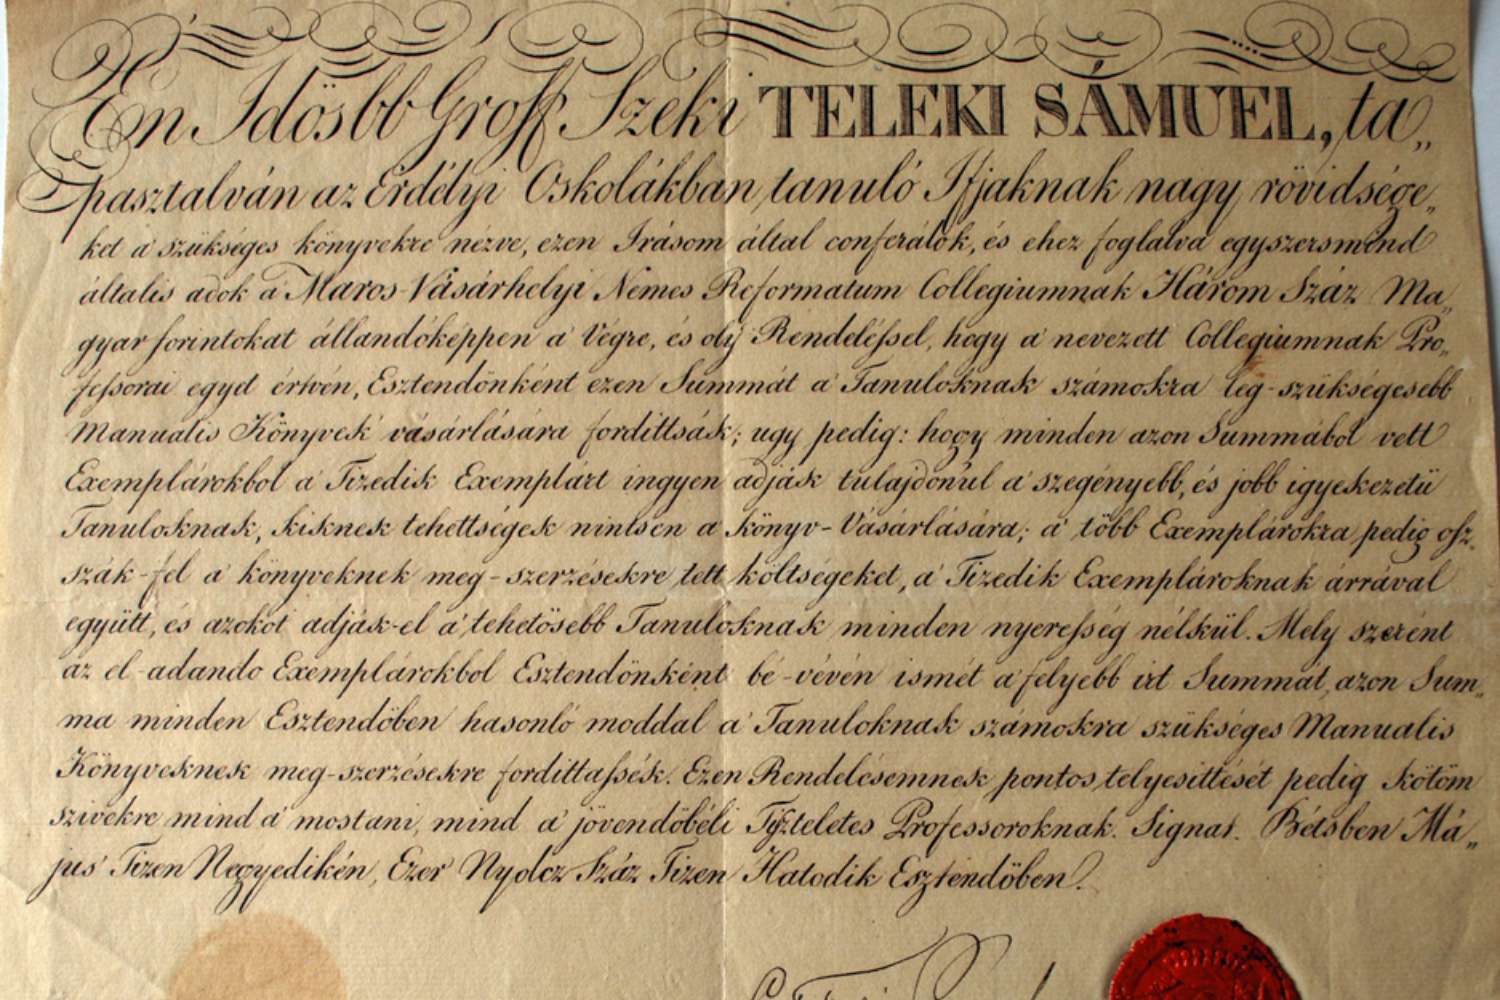 Én Idösbb Groff Széki TELEKI SÁMUEL, ta„
pasztalván az Erdélyi Oskolákban tanuló Ifjaknak nagy rövidsége„
ket a' szükséges könyvekre nézve, ezen Irásom által conferálok, és ehez foglalva egyszersmind
általis adok a' Maros-Vásárhelyi Nemes Reformatum Collegiumnak Három Száz Ma„
gyar forintokat állandóképpen a' Végre, és oly Rendeléssel, hogy a' nevezett Collegiumnak Pro„
fessorai egyet értvén, Esztendönként ezen Summát a' Tanuloknak számokra leg-szükségesebb
Manualis Könyvek vásárlására fordittsák; ugy pedig: hogy minden azon Summábol vett
Exemplárokbol a' Tizedik Exemplárt ingyen adják tulajdonul a' szegényebb, és jobb igyekezetü
Tanuloknak, kiknek tehettségek nintsen a' könyv-Vásárlására; a' több Exemplárokra pedig osz„
szák-fel a' könyveknek meg-szerzésekre tett költségeket, a' Tizedik Exemplároknak árrával
együtt, és azokot adják-el a' tehetösebb Tanuloknak minden nyeresség nélkül. Mely szerént
az el-adando Exemplárokbol Esztendönként bé-vévén ismét a' felyebb irt Summát, azon Sum„
ma minden Esztendöben hasonló moddal a' Tanuloknak számokra szükséges Manualis
Könyveknek meg-szerzésekre fordittassék. Ezen Rendelésemnek pontos telyesittését pedig kötöm
szivekre mind a' mostani, mind a' jövendöbéli Tiszteletes Professoroknak. Signat. Bétsben Má„
jus' Tizen Negyedikén, Ezer Nyolcz Száz Tizen Hatodik Esztendöben.